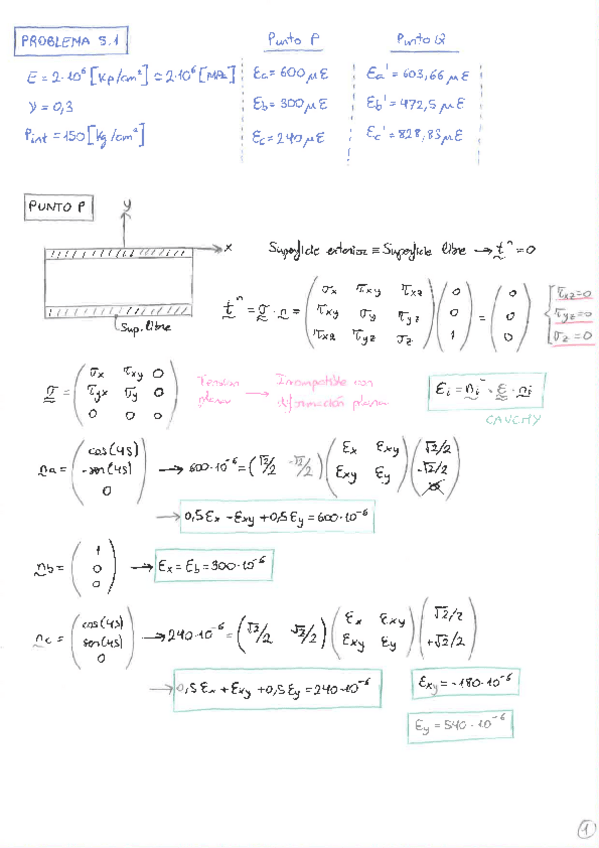 PROBLEMA 5.1
Punto P
Punto Q
E = 2·10⁶ [Kp/cm²] ≃ 2·10⁵ [MPa]
εa = 600 με
εa' = 603,66 με
ν = 0,3
εb = 300 με
εb' = 472,5 με
Pint = 150 [Kg/cm²]
εc = 240 με
εc' = 828,83 με
PUNTO P
y
x
Sup. libre
Superficie exterior ≡ Superficie libre → tⁿ = 0
tⁿ = σ · n = (σx τxy τxz; τxy σy τyz; τxz τyz σz) (0; 0; 1) = (0; 0; 0) { τxz = 0; τyz = 0; σz = 0
σ = (σx τxy 0; τyx σy 0; 0 0 0)
Tension plana → Incompatible con deformación plana
εi = ni · ε · ni
CAUCHY
na = (cos(45); -sen(45); 0) → 600·10⁻⁶ = (√2/2 -√2/2) (εx εxy; εxy εy) (√2/2; -√2/2)
→ 0,5εx - εxy + 0,5εy = 600·10⁻⁶
nb = (1; 0; 0) → εx = εb = 300·10⁻⁶
nc = (cos(45); sen(45); 0) → 240·10⁻⁶ = (√2/2 √2/2) (εx εxy; εxy εy) (√2/2; +√2/2)
→ 0,5εx + εxy + 0,5εy = 240·10⁻⁶
εxy = -180·10⁻⁶
εy = 540·10⁻⁶
1